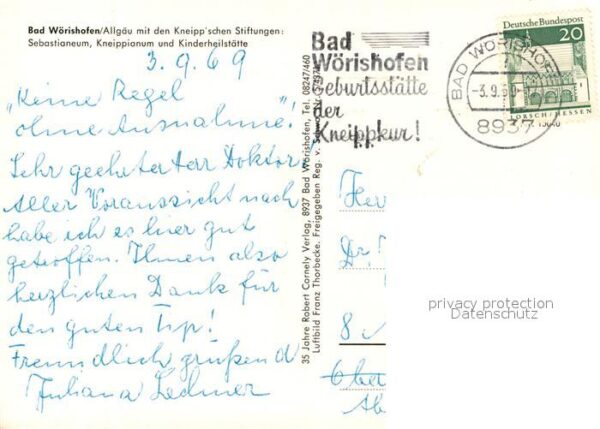 Bad Wörishofen/Allgäu mit den Kneipp'schen Stiftungen:
Sebastianeum, Kneippianum und Kinderheilstätte
3.9.69
„Keine Regel
ohne Ausnahme!"
Sehr geehrter Herr Doktor!
Aller Voraussicht nach
habe ich es hier gut
getroffen. Ihnen also
herzlichen Dank für
den guten Tip!
Freundlich grüßend
Juliana Lechner
35 Jahre Robert Cornely Verlag, 8937 Bad Wörishofen, Tel. 08247/460
Luftbild Franz Thorbecke. Freigegeben Reg. v.
Bad
Wörishofen
Geburtsstätte
der
Kneippkur!
BAD WÖRISHOF
-3.9.69
8937
Deutsche Bundespost
20
LORSCH/HESSEN
Her
Dr.
8
Ober
privacy protection
Datenschutz